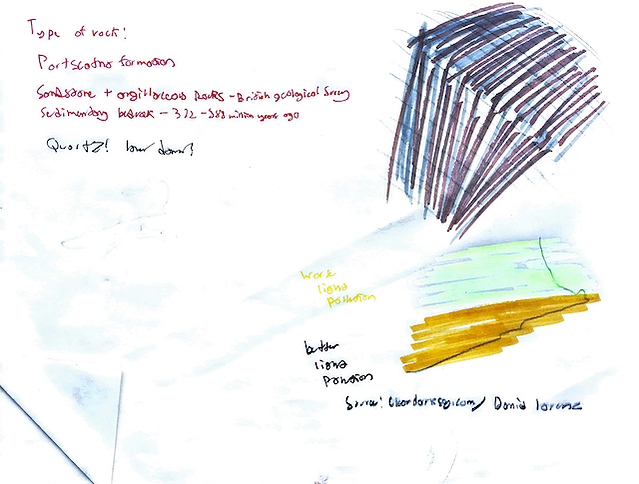 Type of rock!
Portscatho formation
Sandstone + argillaceous Rocks - British geological Survey
Sedimentary bedrock - 372 - 388 million years ago
Quartz! lower down?
worse
light
pollution
better
light
pollution
Source! / David lorenz